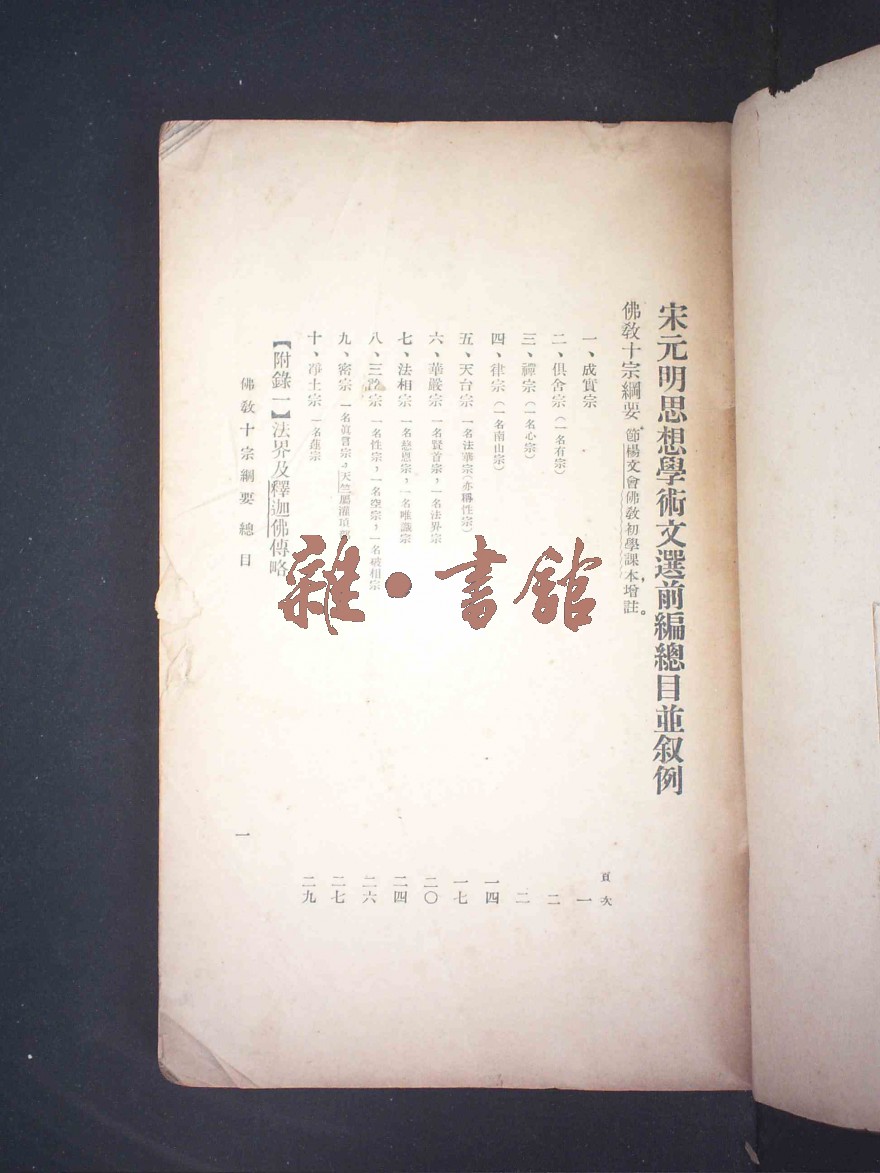 宋元明思想學術文選前編總目並叙例
佛教十宗綱要 節楊文會佛教初學課本，增註。
頁次
一、成實宗 一
二、俱舍宗（一名有宗） 二
三、禪宗（一名心宗） 二
四、律宗（一名南山宗） 一四
五、天台宗 一名法華宗（亦稱性宗） 一七
六、華嚴宗 一名賢首宗，一名法界宗 二〇
七、法相宗 一名慈恩宗，一名唯識宗 二四
八、三論宗 一名性宗，一名空宗，一名破相宗 二六
九、密宗 一名眞言宗，天竺屬灌頂 二七
十、淨土宗 一名蓮宗 二九
【附錄一】法界及釋迦佛傳略
佛教十宗綱要 總目
一
雜·書館